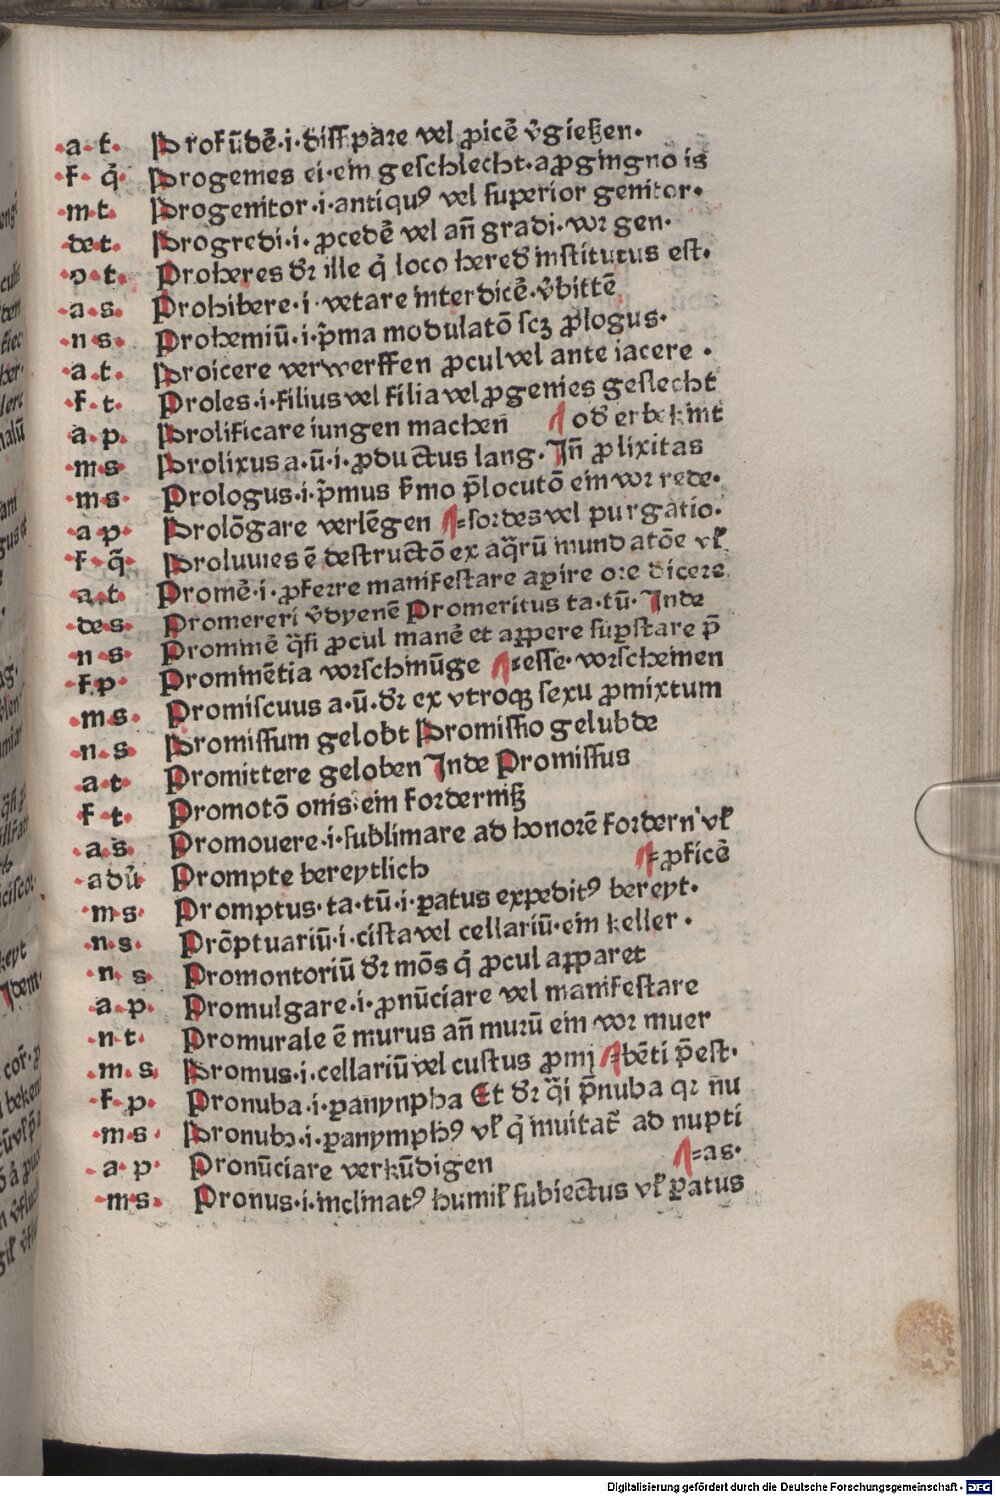 ·a· t· Profūdē·i·diſſpare vel ꝓicē v̄gieſzen·
·f· q̄· Progenies ei·ein geſchlecht·aꝓgingno is
·m t· Progenitor·i·antiquꝰ vel ſuperior genitor·
de t· Progredi·i·ꝓcedē vel an̄ gradi·vor gen·
·ꝯ· t· Proheres dr̄ ille q̄ loco hered̄ inſtitutus eſt·
·a· s· Prohibere·i·vetare interdicē·v̄bittē
·n s· Prohemiū·i·p̄ma modulatō ſcꝫ ꝓlogus·
·a· t· Proicere verwerffen ꝓcul vel ante iacere·
·f· t· Proles·i·filius vel filia vel ꝓgenies geſlecht
·a· p· Prolificare iungen machen̄ od̄ er bekint
·m s· Prolixus a·ū·i·ꝓductus lang·In̄ ꝓlixitas
·m s· Prologus·i·p̄mus ẜmo p̄locutō ein vor rede·
·a p· Prolōgare verlēgen =ſordes vel purgatio·
·f· q̄· Proluuies ē deſtructō ex aq̄rū mundatōe vꝉ
·a· t· Promē·i·ꝓferre manifeſtare aꝑire ore dicere
de s· Promereri v̄dyenē Promeritus ta·tū·Inde
·n s· Prominē q̄ſi ꝓcul manē et aꝑpere ſuꝑſtare p̄
·f p· Prominētia vorſchinūge =eſſe·vorſcheinen
·m s· Promiſcuus a·ū·dr̄ ex vtroqꝫ ſexu ꝓmixtum
·n· s Promiſſum gelobt Promiſſio gelubde
·a t· Promittere geloben Inde Promiſſus
f t· Promotō onis·ein forderniſz
·a s· Promouere·i·ſublimare ad honorē fordern vꝉ
·adū Prompte bereytlich =ꝓficē
·m s· Promptus·ta·tū·i·ꝑatus expeditꝰ bereyt·
·n· s· Prōptuariū·i·ciſta vel cellariū·ein keller·
·n s· Promontoriū dr̄ mōs q̄ ꝓcul aꝑparet
·a p· Promulgare·i·ꝓnūciare vel manifeſtare
·n t· Promurale ē murus an̄ murū ein vor muer
·m s· Promus·i·cellariū vel cuſtus ꝓmj =bēti p̄eſt·
·f· p· Pronuba·i·ꝑanynpha Et dr̄ q̄ſi p̄nuba qr n̄u
·m s· Pronubꝰ·i·ꝑanymphꝰ vꝉ q̄ inuitat̄ ad nupti
·a· p· Pronūciare verkūdigen =as·
·m s· Pronus·i·inclinatꝰ humiꝉ ſubiectus vꝉ ꝑatus
Digitalisierung gefördert durch die Deutsche Forschungsgemeinschaft · DFG